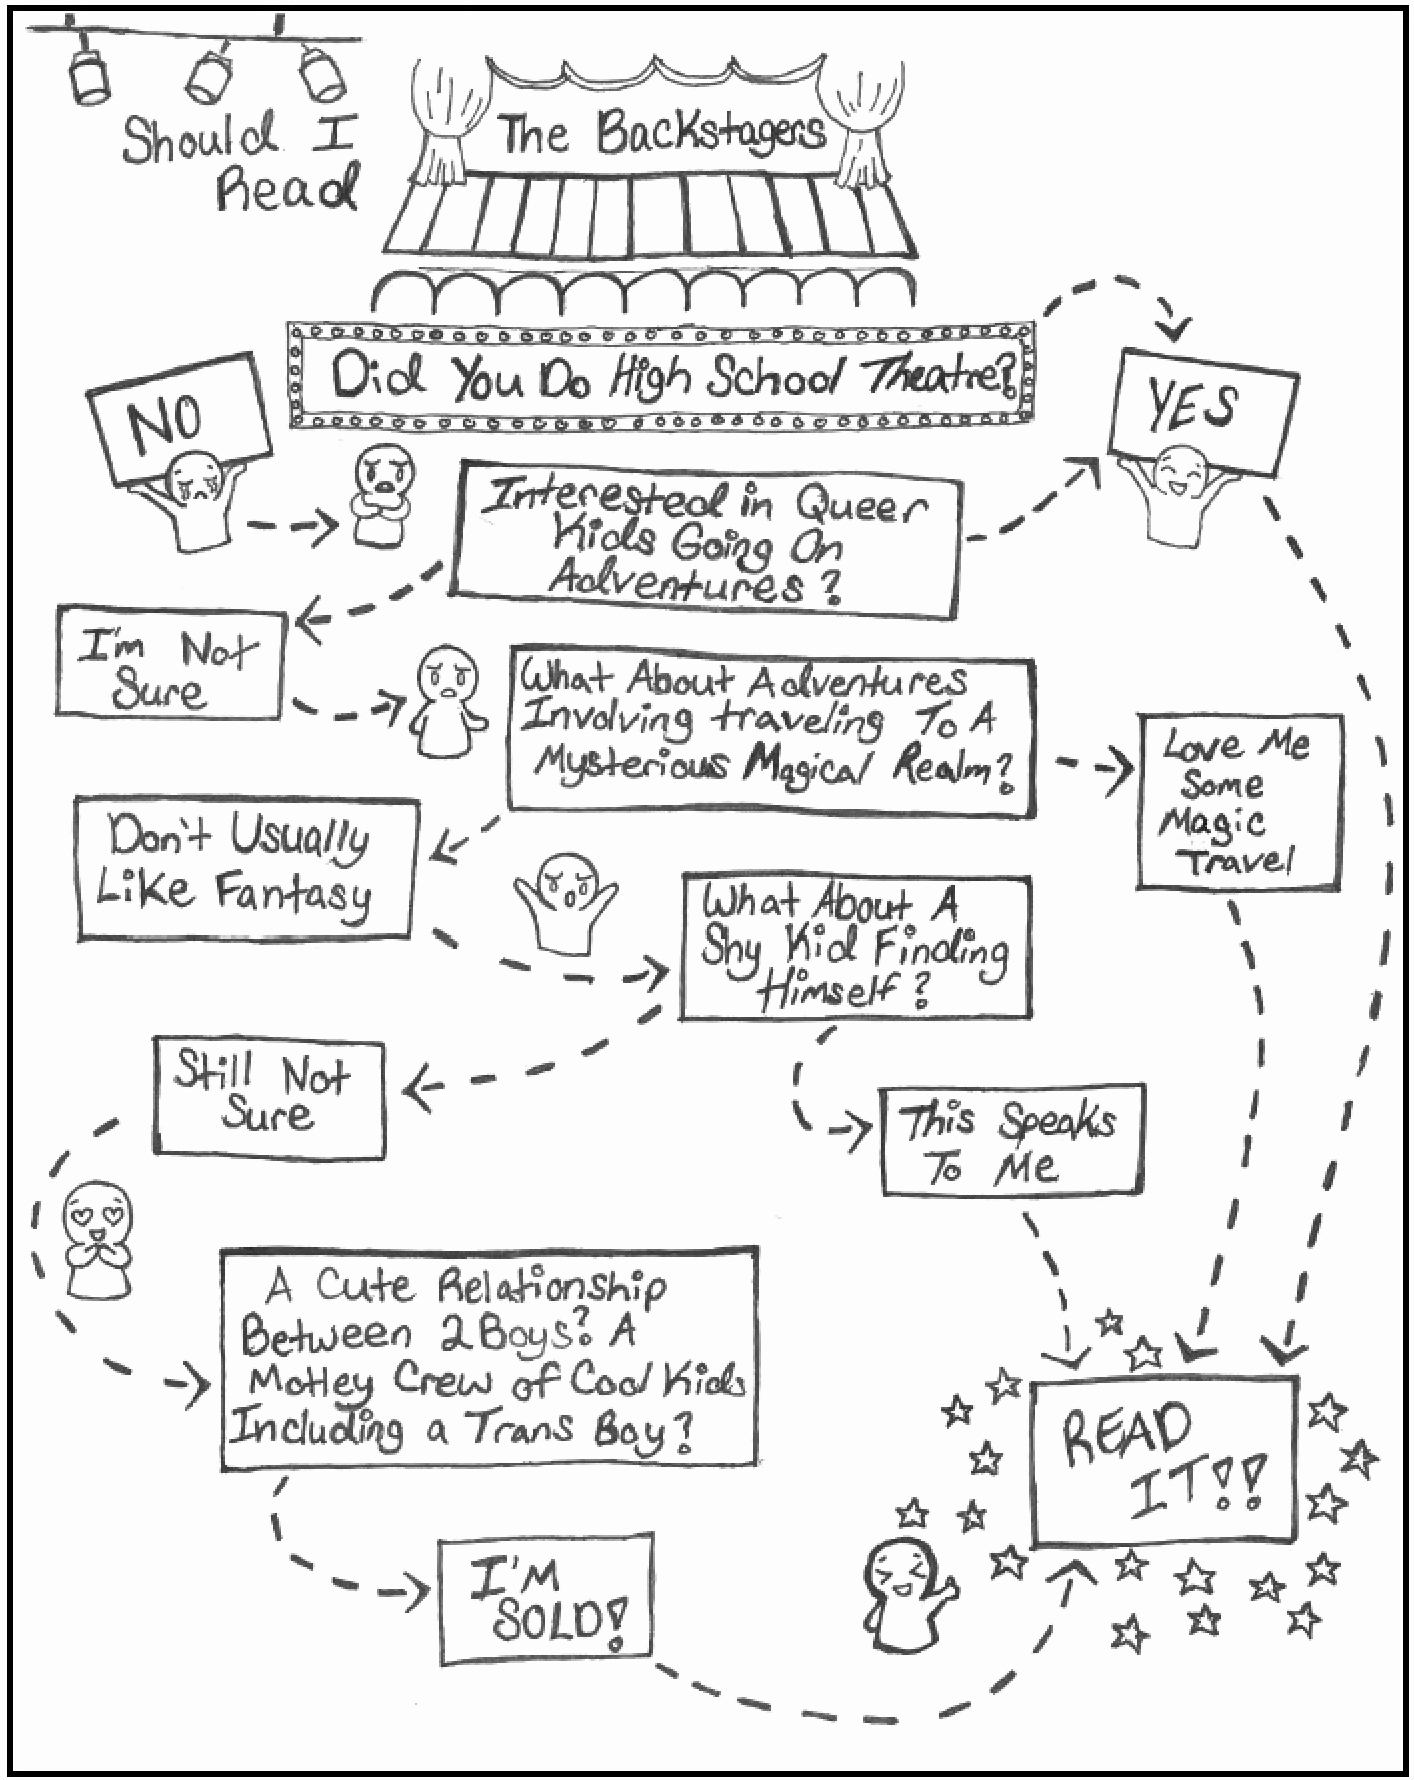 Should I
Read
The Backstagers
Did You Do High School Theatre?
NO
YES
Interested in Queer
Kids Going On
Adventures?
I'm Not
Sure
What About Adventures
Involving traveling To A
Mysterious Magical Realm?
Love Me
Some
Magic
Travel
Don't Usually
Like Fantasy
What About A
Shy Kid Finding
Himself?
Still Not
Sure
This Speaks
To Me
A Cute Relationship
Between 2 Boys? A
Motley Crew of Cool Kids
Including a Trans Boy?
READ
IT!!
I'M
SOLD!